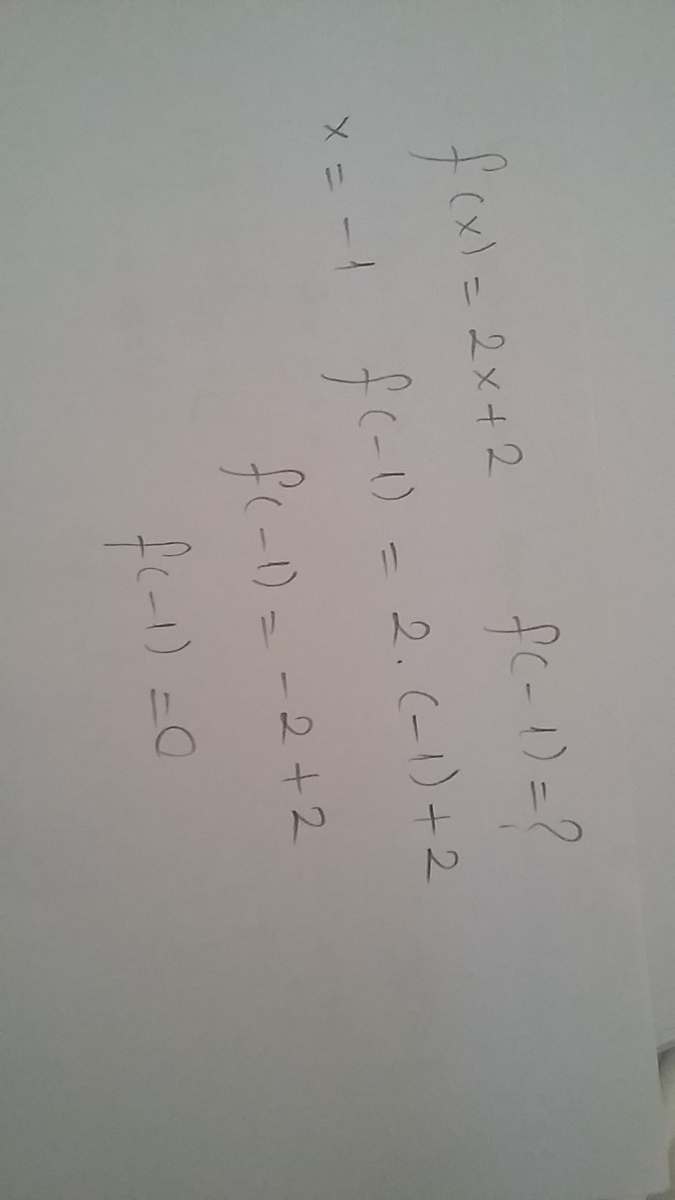 f(x) = 2x+2 f(-1) = ?
x = -1 f(-1) = 2.(-1)+2
f(-1) = -2+2
f(-1) =0